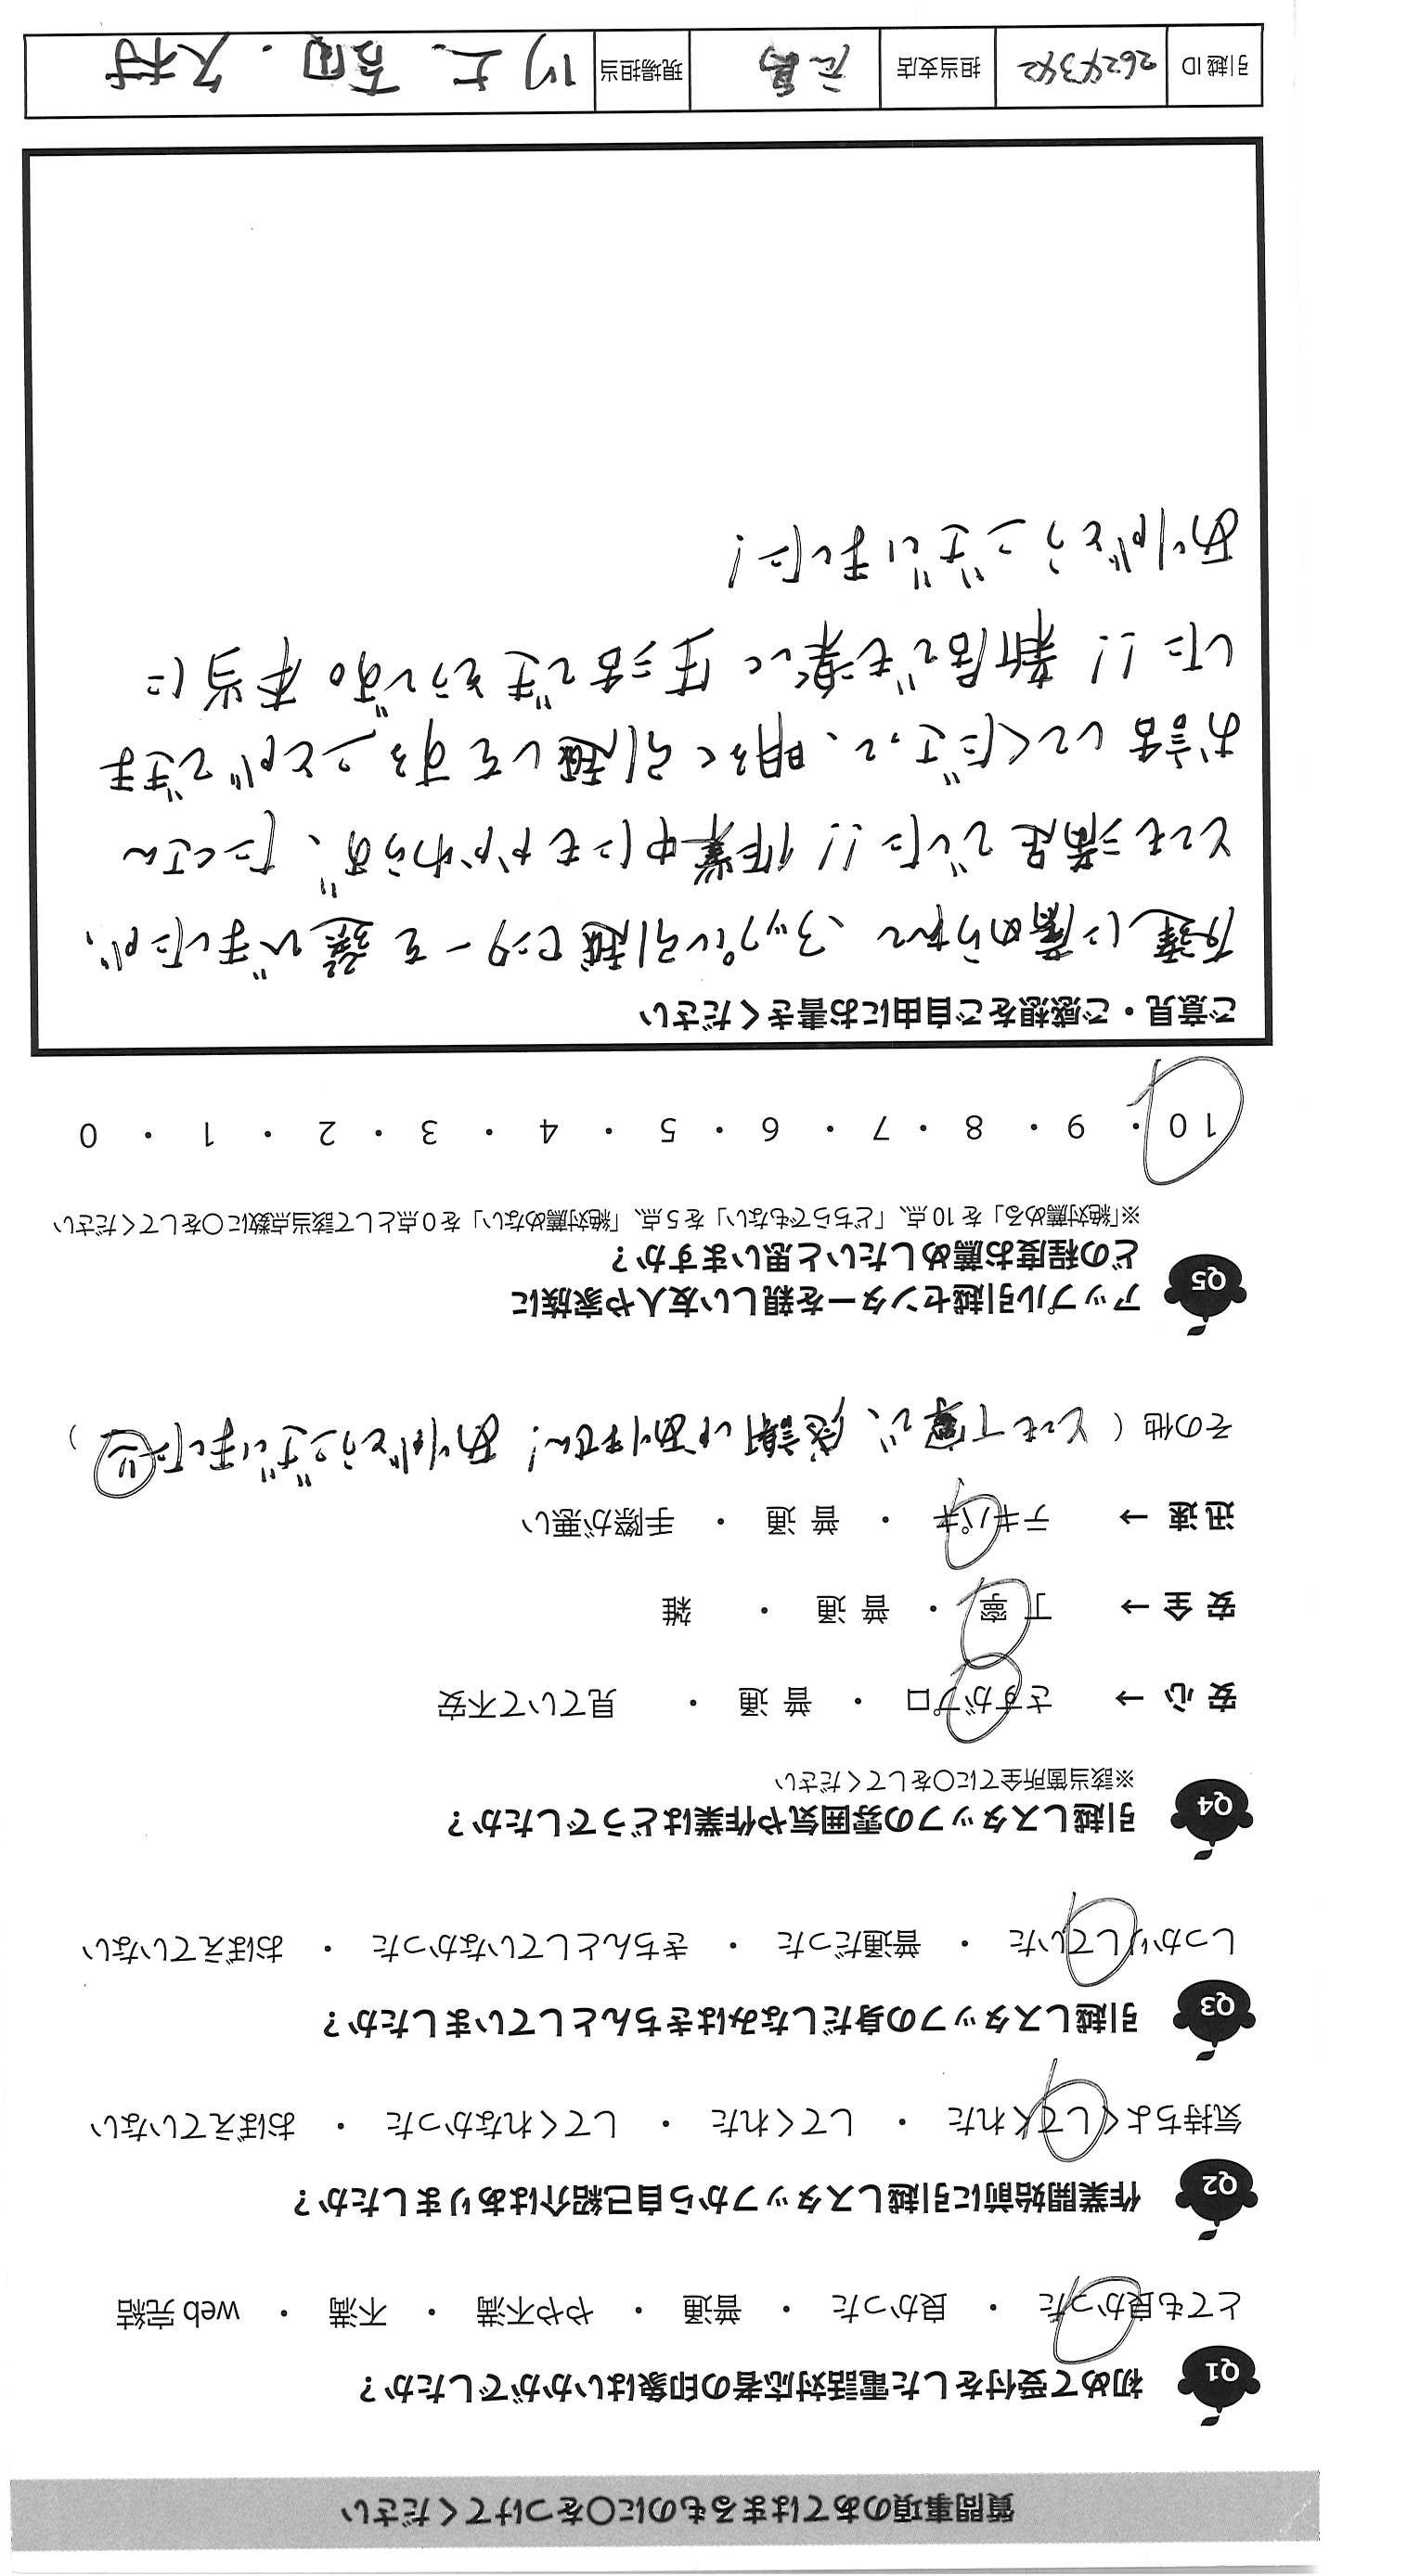 質問事項のあてはまるものに〇をつけてください
Q1 初めて受付をした電話対応者の印象はいかがでしたか?
とても良かった ・ 良かった ・ 普通 ・ やや不満 ・ 不満 ・ web 完結
Q2 作業開始前に引越しスタッフから自己紹介はありましたか?
気持ちよくしてくれた ・ してくれた ・ してくれなかった ・ おぼえていない
Q3 引越しスタッフの身だしなみはきちんとしていましたか?
しっかりしていた ・ 普通だった ・ きちんとしていなかった ・ おぼえていない
Q4 引越しスタッフの雰囲気や作業はどうでしたか?
※該当箇所全てに〇をしてください
安 心 → さすがプロ ・ 普 通 ・ 見ていて不安
安 全 → 丁 寧 ・ 普 通 ・ 雑
迅 速 → テキパキ ・ 普 通 ・ 手際が悪い
その他 ( とても丁寧で、感謝しかありません! ありがとうございました )
Q5 アップル引越センターを親しい友人や家族に
どの程度お薦めしたいと思いますか?
※「絶対薦める」を 10 点、「どちらでもない」を 5 点、「絶対薦めない」を 0 点として該当点数に〇をしてください
10 ・ 9 ・ 8 ・ 7 ・ 6 ・ 5 ・ 4 ・ 3 ・ 2 ・ 1 ・ 0
ご意見・ご感想をご自由にお書きください
友達に薦められて、アップル引越センターを選びましたが、
とても満足でした!! 作業中にもかかわらず、たくさん
お話してくださって、明るく引越しをすることができま
した!! 新居でも楽しく生活できそうです。本当に
ありがとうございました!
引越 ID 2624342 担当支店 広島 現場担当 川上 高田・久村